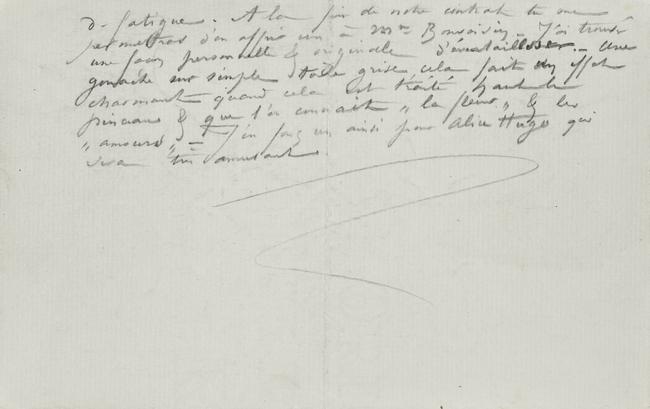 d. fatigue. A la fin de notre contrat tu me
permettras d'en offrir un à Mme Bonvoisin – J'ai trouvé
une façon personnelle & originale d'éventailliser – une
gouache sur simple toile grise cela fait un effet
charmant quand cela est traité par le
pinceau & que l'on connait „la fleur" & les
„amours" – J'en fais un ainsi pour Alice Hugo qui
sera très amusant.